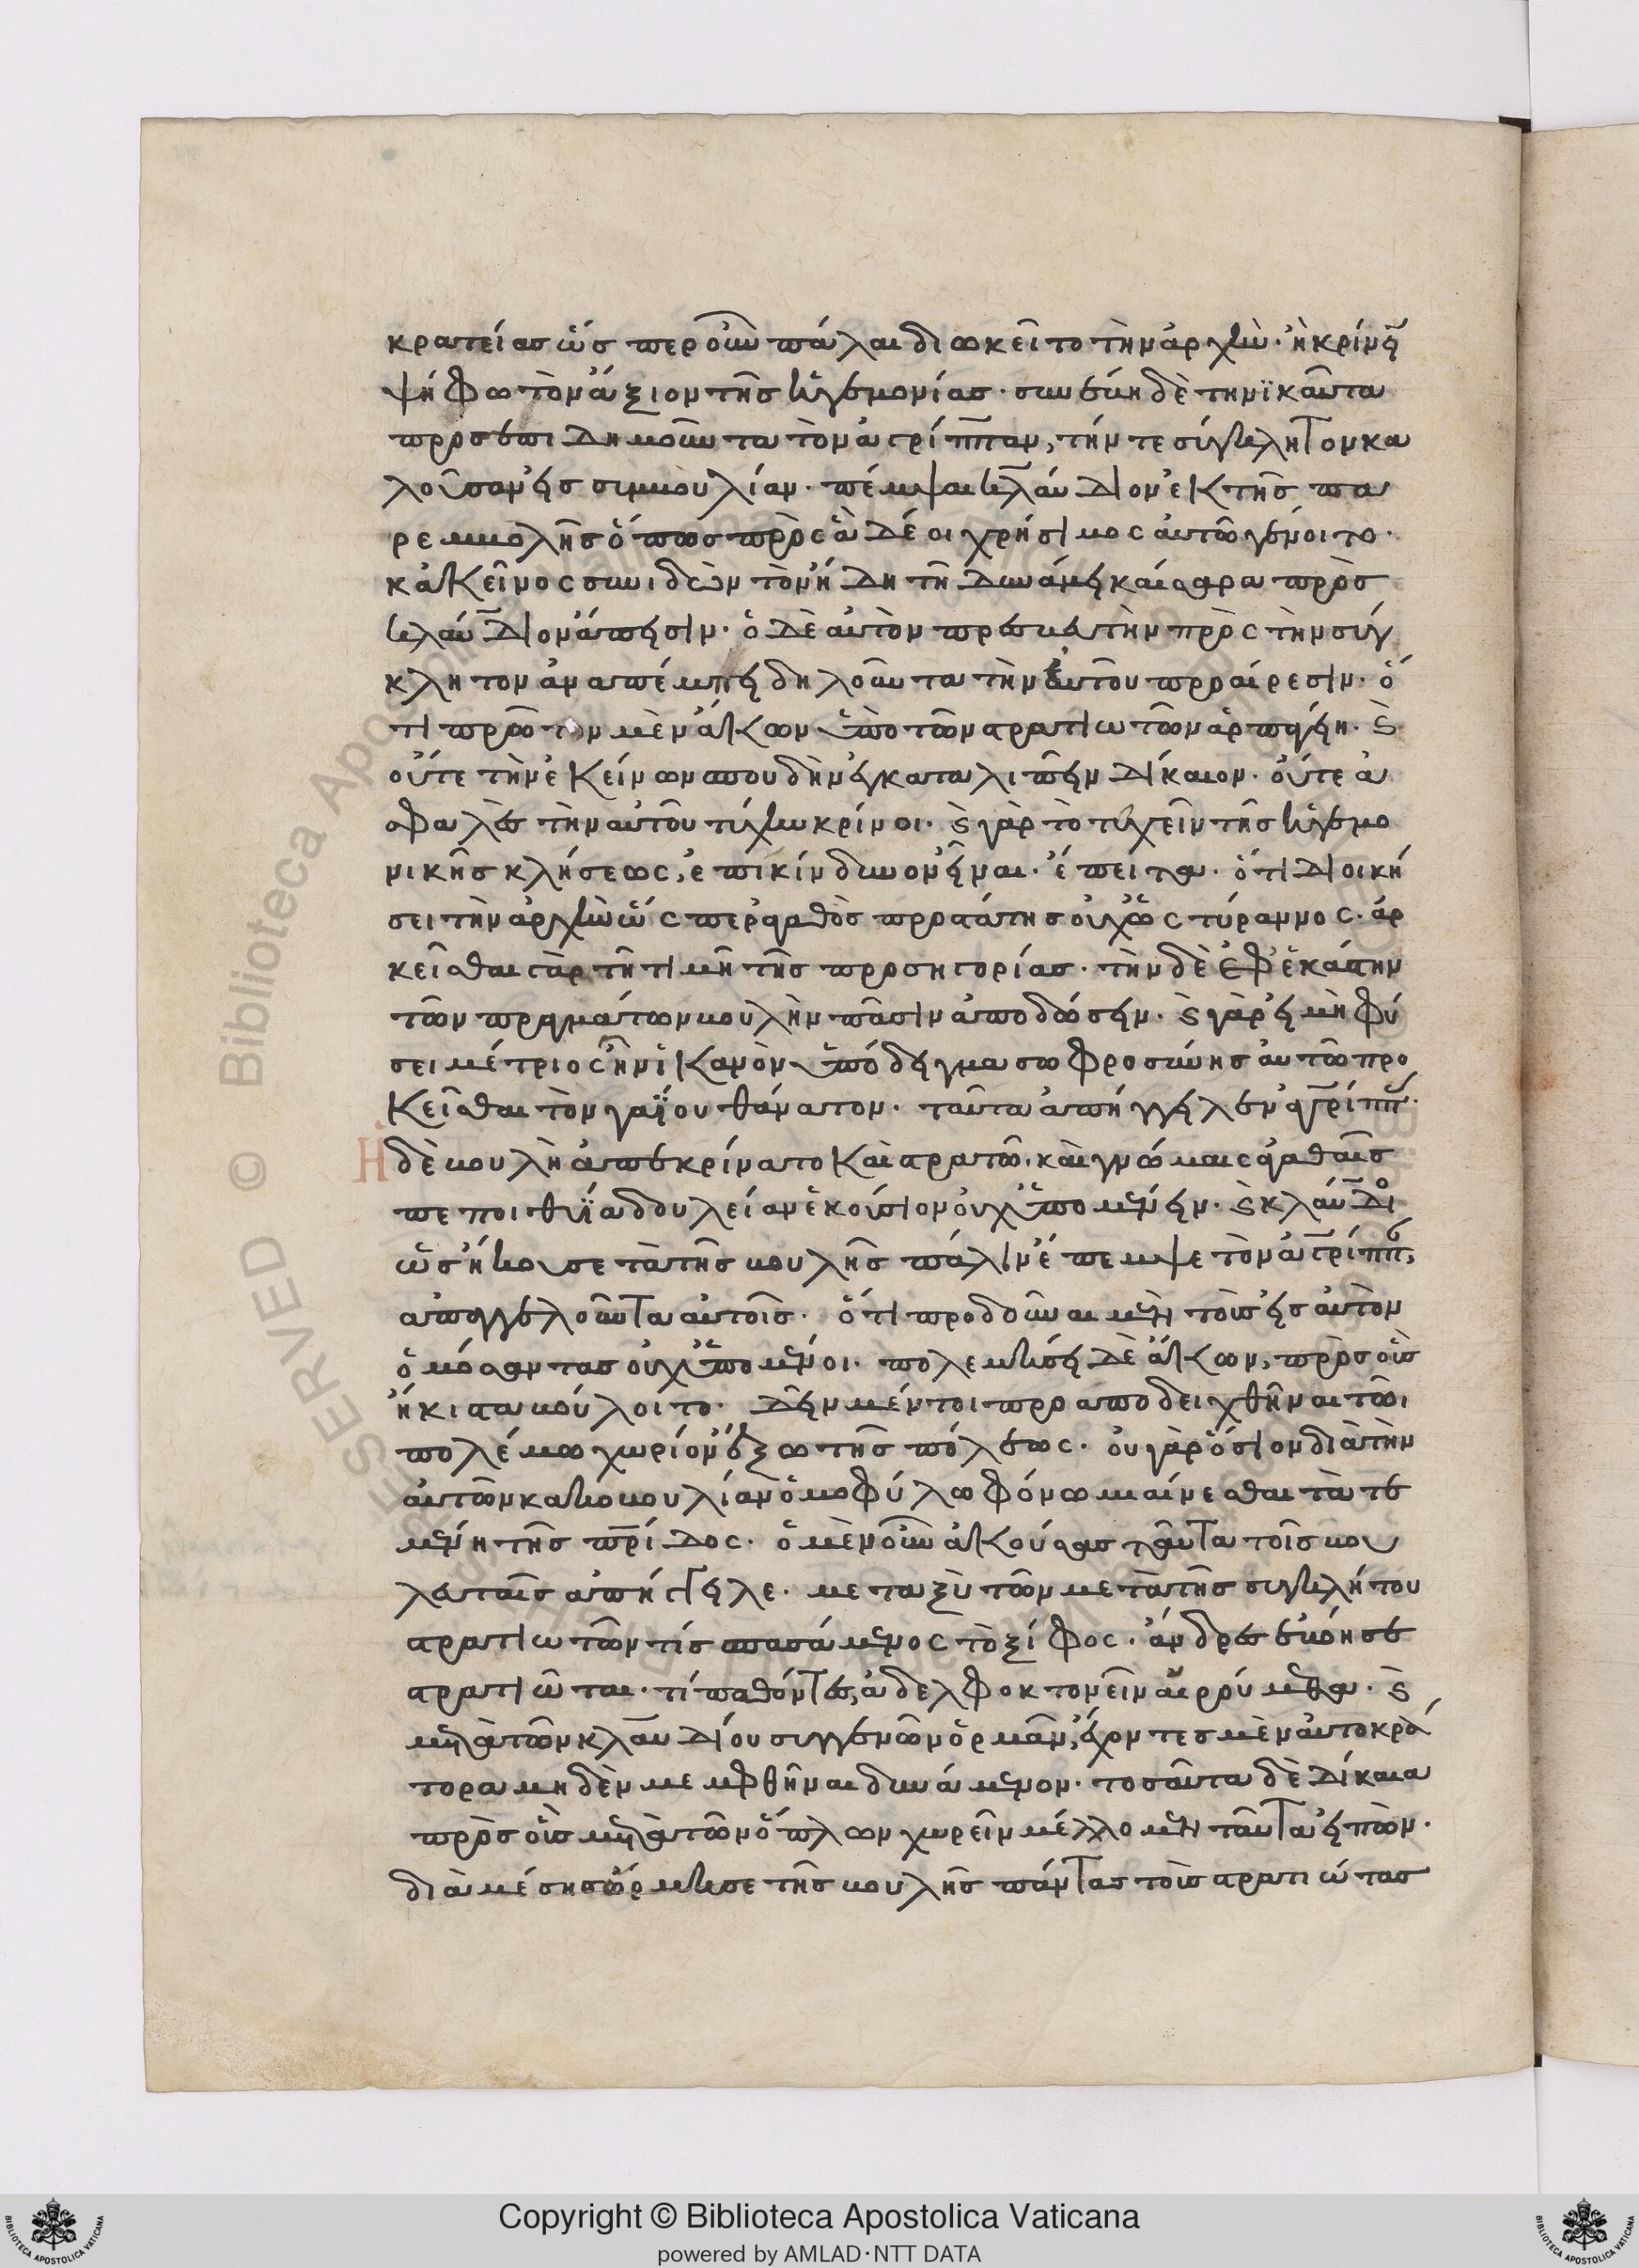 κρατείας ὥσπερ οὖν πάλαι διωκεῖτο τὴν ἀρχὴν. ἢ κρίνειν
ψήφω τὸν ἄξιον τῆς ἡγεμονίας. συνέβη δὲ τηνϊκαῦτα
προς ἐπιδημοῦντα τὸν ἀγρίππαν, τήν τε σύγκλητον κα
λοῦσαν εἰς συμβουλίαν. πέμψαι κλαύδιον ἐκ τῆς πα
ρεμβολῆς ὅπως πρὸς ἃ δέοι χρήσιμος αὐτῶ γένοιτο.
κἀκεῖνος συνιδὼν τὸν ἤδη τῆ δυνάμει καίσαρα πρὸς
κλαύδιον ἄπεισιν. ὁ δὲ αὐτὸν πρεσβευτὴν πρὸς τὴν σύγ
κλητον ἀναπέμπει δηλοῦντα τὴν ἑαυτοῦ προαίρεσιν. ὅ
τι πρῶτον μὲν ἄκων ὑπὸ τῶν στρατιωτῶν ἁρπαγείη. καὶ
οὔτε τὴν ἐκείνων σπουδὴν ἐγκαταλιπεῖν δίκαιον. οὔτε ἀ
σφαλὲς τὴν αὐτοῦ τύχην κρίνοι. καὶ γὰρ τὸ τυχεῖν τῆς ἡγεμο
νικῆς κλήσεως, ἐπικίνδυνον εἶναι. ἔπειτα. ὅτι διοική
σει τὴν ἀρχὴν ὥσπερ ἀγαθὸς προστάτης οὐχ ὡς τύραννος. ἀρ
κεῖσθαι γὰρ τῆ τιμῆ τῆς προσηγορίας. τὴν δὲ ἐφ' ἑκάστην
τῶν πραγμάτων βουλὴν πᾶσιν ἀποδώσειν. καὶ γὰρ εἰ μὴ φύ
σει μέτριος ἦν ἱκανὸν ὑπόδειγμα σωφροσύνης αὐτῶ προ
κεῖσθαι τὸν γαΐου θάνατον. ταῦτα ἀπήγγειλεν ἀγρίππας.
Ἡ
δὲ βουλὴ ἀπεκρίνατο καὶ στρατῶ. καὶ γνώμαις ἀγαθαῖς
πεποιθυῖα δουλείαν ἑκούσιον οὐχ ὑπομενεῖν. καὶ κλαύδιος
ὡς ἤκουσε τὰ τῆς βουλῆς πάλιν ἔπεμψε τὸν ἀγρίππαν,
ἀπαγγελοῦντα αὐτοῖς. ὅτι προδοῦναι μὲν τοὺς εἰς αὐτὸν
ὁμόσαντας οὐχ ὑπομένοι. πολεμήσει δὲ ἄκων, πρὸς οὓς
ἥκιστα βούλοιτο. δεῖν μέντοι προαποδειχθῆναι τῶι
πολέμω χωρίον ἔξω τῆς πόλεως. οὐ γὰρ ὅσιον διὰ τὴν
αὐτῶν κακοβουλίαν ὁμοφύλω φόνω μιαίνεσθαι τὰ τε
μένη τῆς πρίδος. ὁ μὲν οὖν ἀκούσας ταῦτα τοῖς βου
λευταῖς ἀπήγγειλε. μεταξὺ τῶν μετὰ τῆς συγκλήτου
στρατιωτῶν τίς σπασάμενος τὸ ξίφος. ἄνδρες ἐβόησε
στρατιῶται. τί παθόντες, ἀδελφοκτονεῖν αἱρούμεθα. καὶ
μετὰ τῶν κλαυδίου συγγενῶν ὁρμᾶν, ἔχοντες μὲν αὐτοκρά
τορα μηδὲν μεμφθῆναι δυνάμενον. τοσαῦτα δὲ δίκαια
πρὸς οὓς μετὰ τῶν ὅπλων χωρεῖν μέλλομεν ταῦτα εἰπὼν.
διὰ μέσης ὥρμησε τῆς βουλῆς πάντας τοὺς στρατιώτας
Copyright © Biblioteca Apostolica Vaticana
powered by AMLAD·NTT DATA